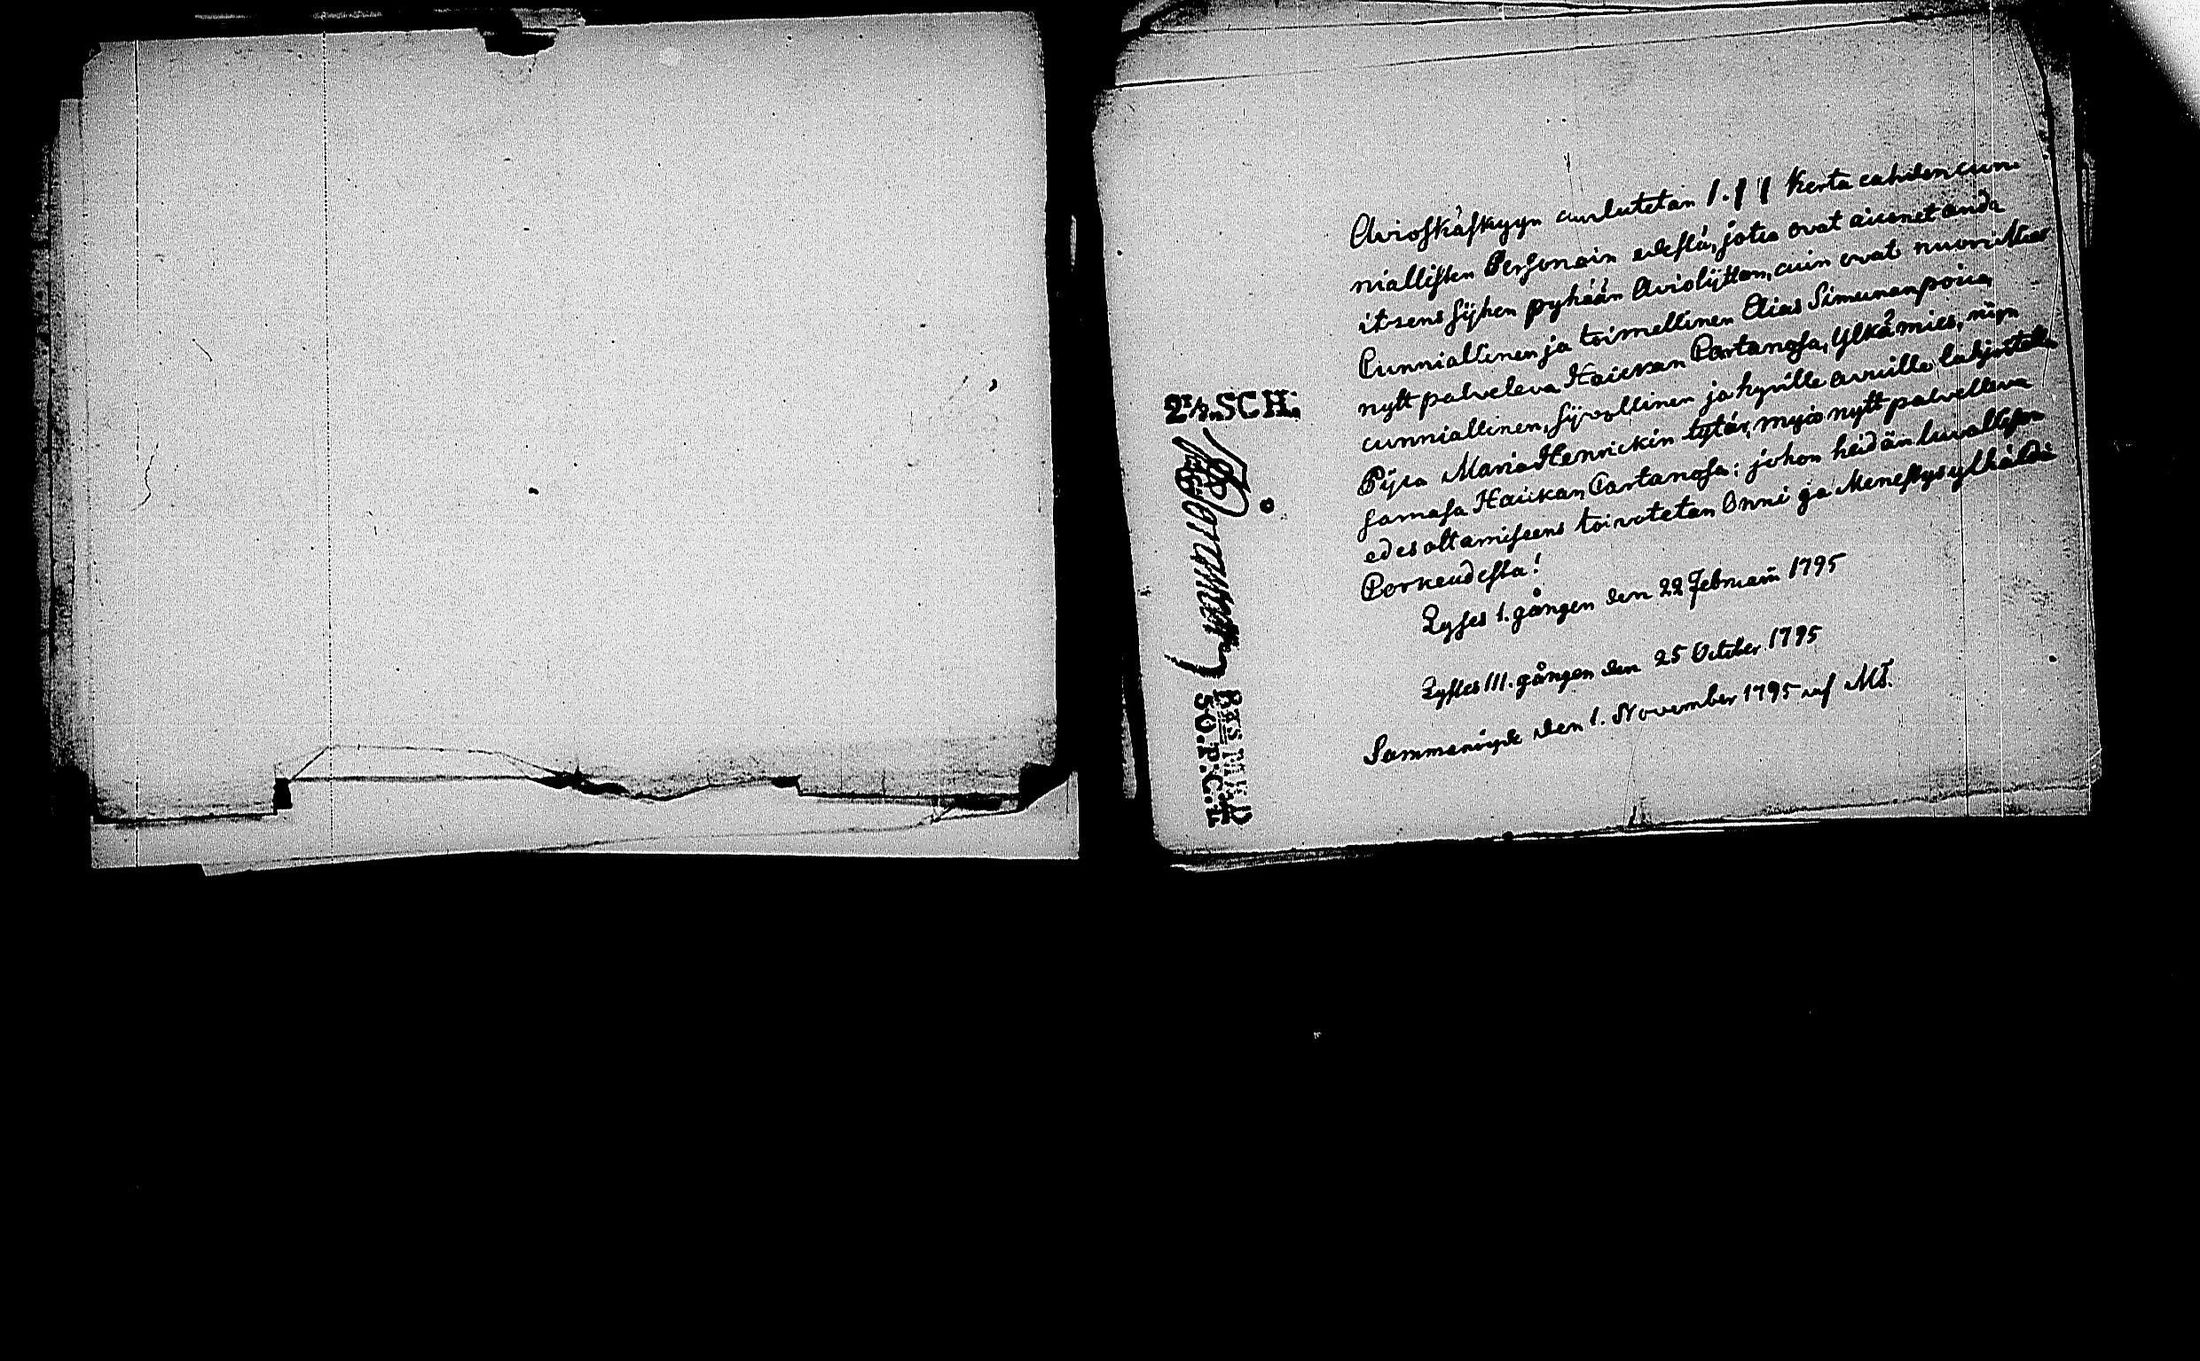 Aviosskäskyyn cuulutetan 1. Kerta cahden cun-
niallisen Personain edestä, jotca ovat aicunet anda
itzens sijhen pyhään Aviosijttom, cuin ovat nuori Mies
Cunniallinen ja toimellinen Elias Simunanpoica,
nytt palveleva Haickan Cartanosa, Ylkämies, nijn
cunniallinen, sijvollinen ja hyville avuille lahjoitettu
Pijca Maria Henrickin tytär, myös nytt palvelleva
samasa Haickan Cartanosa: johon heidän luvallisen
edesottamiseens toivotetan Onni ja Menestys ylhäldä
Corkeudesta!
Lyses 1. gången den 22 Februarii 1795
Lystes III. gången den 25 October 1795
Sammanvigde den 1. November 1795 af
2 1/2 SCH.